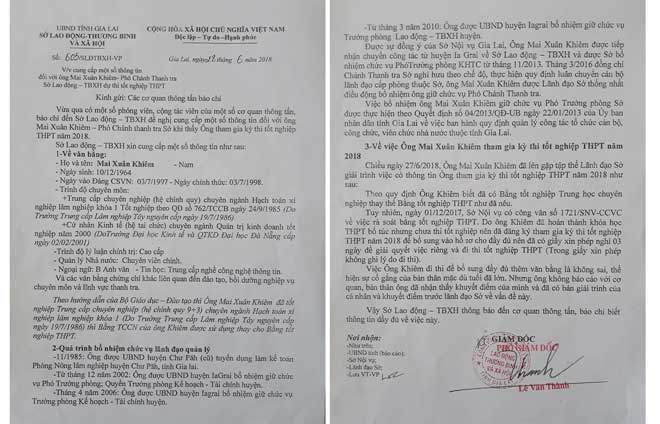 UBND TỈNH GIA LAI
SỞ LAO ĐỘNG-THƯƠNG BINH
VÀ XÃ HỘI
CỘNG HÒA XÃ HỘI CHỦ NGHĨA VIỆT NAM
Độc lập – Tự do –Hạnh phúc
/SLĐTBXH-VP
V/v cung cấp một số thông tin
đối với ông Mai Xuân Khiêm- Phó Chánh Thanh tra
Sở Lao động – TBXH dự thi tốt nghiệp THPT
Gia Lai, ngày tháng 6 năm 2018
Kính gửi: Các cơ quan thông tấn báo chí
Vừa qua có một số phóng viên, cộng tác viên của một số cơ quan thông tấn,
báo chí đến Sở Lao động – TBXH đề nghị cung cấp một số thông tin đối với ông
Mai Xuân Khiêm – Phó Chánh thanh tra Sở khi thấy Ông tham gia kỳ thi tốt nghiệp
THPT năm 2018.
Sở Lao động – TBXH xin cung cấp một số thông tin như sau:
1-Về văn bằng:
- Họ và tên: Mai Xuân Khiêm - Nam
- Ngày sinh: 10/12/1964
- Ngày vào Đảng CSVN: 03/7/1997 - Ngày chính thức: 03/7/1998.
- Trình độ chuyên môn:
+Trung cấp chuyên nghiệp (hệ chính quy) chuyên ngành Hạch toán xí
nghiệp lâm nghiệp khóa 1 Tốt nghiệp theo QĐ số 762/TCCB ngày 24/9/1985 (Do
Trường Trung cấp Lâm nghiệp Tây nguyên cấp ngày 19/7/1986)
+Cử nhân Kinh tế (hệ tại chức) chuyên ngành Quản trị kinh doanh tốt
nghiệp năm 2000 (DoTrường Đại học Kinh tế và QTKD Đại học Đà Nẵng cấp
ngày 02/02/2001)
-Trình độ lý luận chính trị: Cao cấp
-Quản lý Nhà nước: Chuyên viên chính.
- Ngoại ngữ: B Anh văn - Tin học: Trung cấp nghề công nghệ thông tin.
Và các văn bằng chứng chỉ khác liên quan đến đào tạo, bồi dưỡng nghiệp vụ
chuyên môn và lĩnh vực thanh tra.
Theo hướng dẫn của Bộ Giáo dục – Đào tạo thì Ông Mai Xuân Khiêm đã tốt
nghiệp Trung cấp chuyên nghiệp (hệ chính quy 9+3) chuyên ngành Hạch toán xí
nghiệp lâm nghiệp khóa 1 (Do Trường Trung cấp Lâm nghiệp Tây nguyên cấp
ngày 19/7/1986) thì Bằng TCCN của ông Khiêm được sử dụng thay cho Bằng tốt nghiệp
THPT.
2-Quá trình bổ nhiệm chức vụ lãnh đạo quản lý
-11/1985: Ông được UBND huyện Chư Păh (cũ) tuyển dụng làm kế toán
Phòng Nông lâm nghiệp huyện Chư Păh, tỉnh Gia lai.
-Từ tháng 12 năm 2002: Ông được UBND huyện IaGrai bổ nhiệm giữ chức
vụ Phó Trưởng phòng; Quyền Trưởng phòng Kế hoạch - Tài chính huyện.
-Tháng 4 năm 2006: Ông được UBND huyện Iagrai bổ nhiệm giữ chức vụ
Trưởng phòng Kế hoạch - Tài chính huyện.
-Từ tháng 3 năm 2010: Ông được UBND huyện Iagrai bổ nhiệm giữ chức vụ
Trưởng phòng Lao động – TBXH huyện.
Được sự đồng ý của Sở Nội vụ Gia Lai, Ông Mai Xuân Khiêm được tiếp
nhận chuyển công tác từ huyện Ia Grai về Sở Lao động – TBXH và được Sở bổ
nhiệm chức vụ PhóTrưởng phòng KHTC từ tháng 11/2013. Tháng 3/2016 đồng chí
Chánh Thanh tra Sở nghỉ hưu theo chế độ, thực hiện quy định luân chuyển cán bộ
lãnh đạo cấp phòng thuộc Sở, ông Mai Xuân Khiêm được Lãnh đạo Sở thống nhất
điều động bổ nhiệm ông giữ chức vụ Phó Chánh Thanh tra.
Việc bổ nhiệm ông Mai Xuân Khiêm giữ chức vụ Phó Trưởng phòng Sở
được thực hiện theo Quyết định số 04/2013/QĐ-UB ngày 22/01/2013 của Ủy ban
nhân dân tỉnh Gia Lai về việc ban hành quy định quản lý công tác tổ chức cán bộ,
công chức, viên chức nhà nước thuộc tỉnh Gia Lai.
3-Về việc Ông Mai Xuân Khiêm tham gia kỳ thi tốt nghiệp THPT năm
2018
Chiều ngày 27/6/2018, Ông Mai Xuân Khiêm đã lên gặp tập thể Lãnh đạo Sở
giải trình việc có thông tin Ông tham gia kỳ thi tốt nghiệp THPT năm 2018 như
sau:
Theo quy định Ông Khiêm biết đã có Bằng tốt nghiệp Trung học chuyên
nghiệp thay thế Bằng tốt nghiệp THPT như đã nêu.
Tuy nhiên, ngày 01/12/2017, Sở Nội vụ có công văn số 1721/SNV-CCVC
về việc rà soát bằng tốt nghiệp THPT. Do ông Khiêm đã hoàn thành khóa học
THPT bổ túc nhưng chưa thi tốt nghiệp nên đã đăng ký tham gia kỳ thi tốt nghiệp
THPT năm 2018 để bổ sung vào hồ sơ cho đầy đủ nên đã có giấy xin phép nghỉ 03
ngày để giải quyết việc riêng và đi thi tốt nghiệp THPT (Trong giấy xin phép
không ghi lý do đi thi).
Việc Ông Khiêm đi thi để bổ sung đầy đủ thêm văn bằng là không sai, thể
hiện sự cố gắng của bản thân mặc dù tuổi đã lớn. Nhưng ông không báo cáo với cơ
quan, bản thân ông đã nhận thấy khuyết điểm của mình và đã có bản giải trình của
cá nhân và khuyết điểm trước lãnh đạo Sở về vấn đề này.
Vậy Sở Lao động – TBXH thông báo đến cơ quan thông tấn, báo chí biết
thông tin đầy đủ về việc này.
Nơi nhận:
-Như trên;
-UBND tỉnh (báo cáo);
-Sở Nội vụ;
-Lãnh đạo Sở;
-Lưu VT-VP
GIÁM ĐỐC
PHÓ GIÁM ĐỐC
SỞ
LAO ĐỘNG
THƯƠNG BINH
VÀ XÃ HỘI
Lê Văn Thành